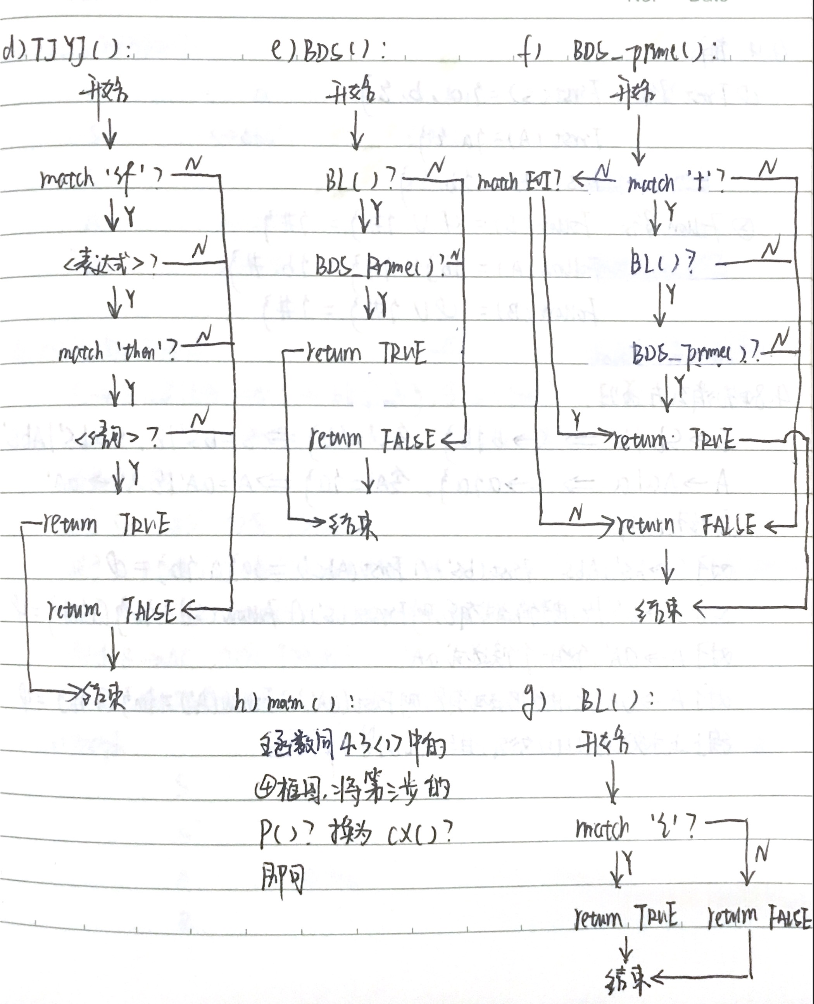 d) TJYJ():
开始
match 'if'? N
Y
<表达式>? N
Y
match 'then'? N
Y
<语句>? N
Y
return TRUE
return FALSE
结束
e) BDS():
开始
BL()? N
Y
BDS_prime()? N
return TRUE
return FALSE
结束
f) BDS_prime():
开始
match? N match '+'? N
Y
BL()? N
Y
BDS_prime()? N
Y
Y return TRUE
N return FALSE
结束
h) main():
主函数同4.3<1>中的
④框图,将第三步的
P()? 换为 CX()?
即可
g) BL():
开始
match 'i'?
Y N
return TRUE return FALSE
结束